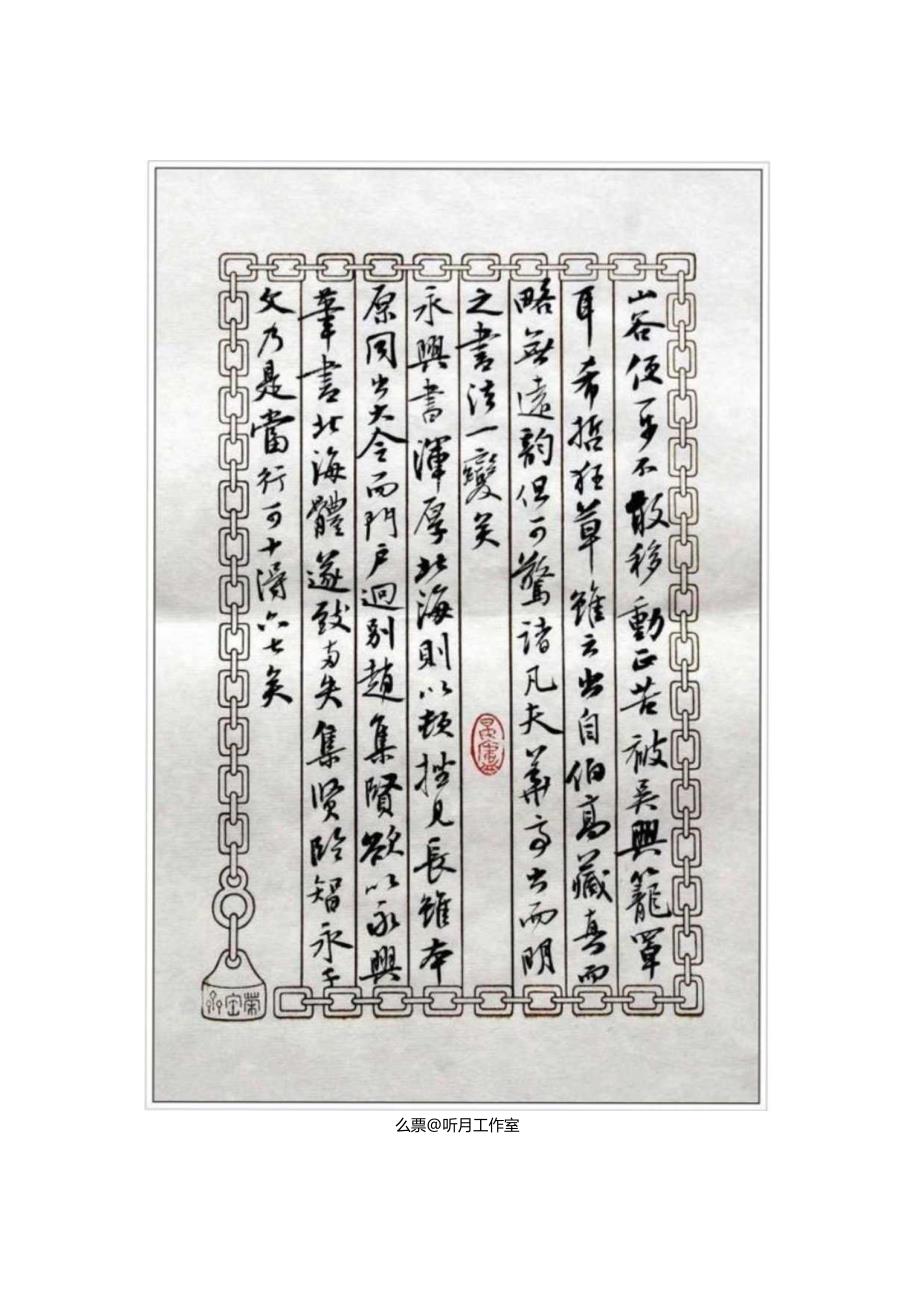 山谷便一步不敢移動正苦被吴興籠罩
耳希哲狂草雖云出自伯高藏真而
略無遠韵但可驚諸凡夫華亭出而明
之書法一變矣
永興書渾厚北海則以頓挫見長雖本
原同出大令而門户迥别趙集賢欲以永興
筆書北海體遂致两失集贤臨智永千
文乃是當行可十得六七矣
榮宝
么票@听月工作室